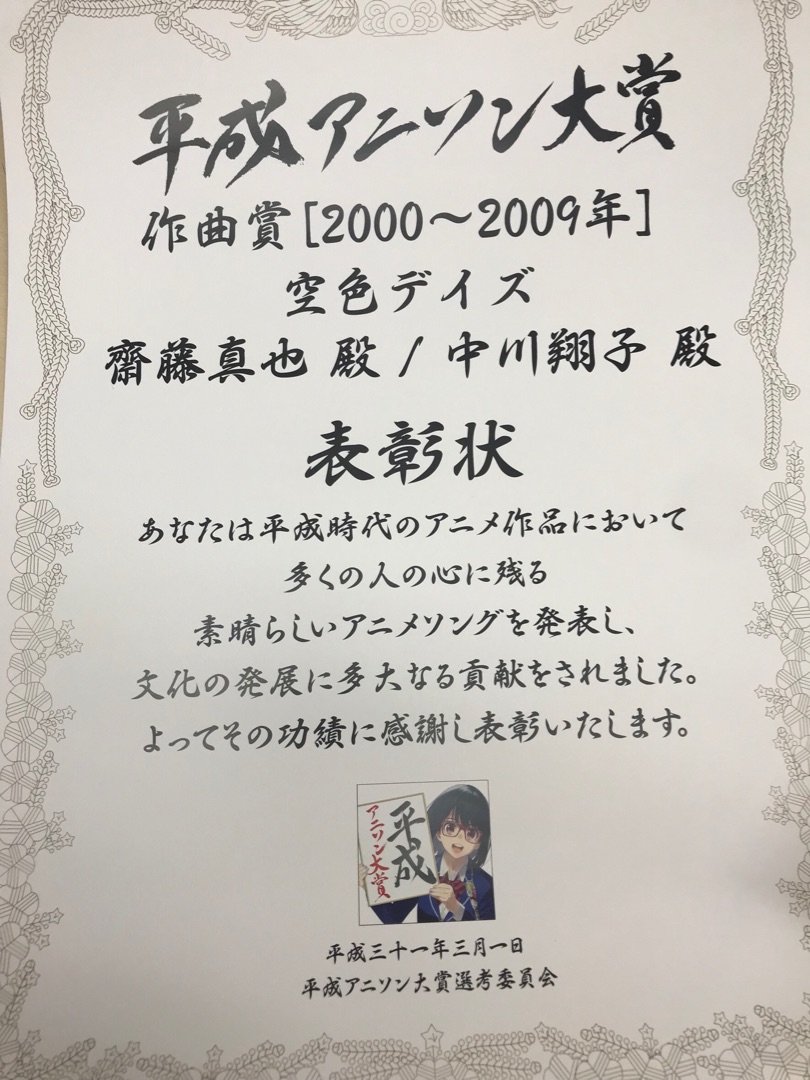 平成アニソン大賞
作曲賞[2000～2009年]
空色デイズ
齋藤真也 殿 / 中川翔子 殿
表彰状
あなたは平成時代のアニメ作品において
多くの人の心に残る
素晴らしいアニメソングを発表し、
文化の発展に多大なる貢献をされました。
よってその功績に感謝し表彰いたします。
平成
アニソン大賞
平成三十一年三月一日
平成アニソン大賞選考委員会